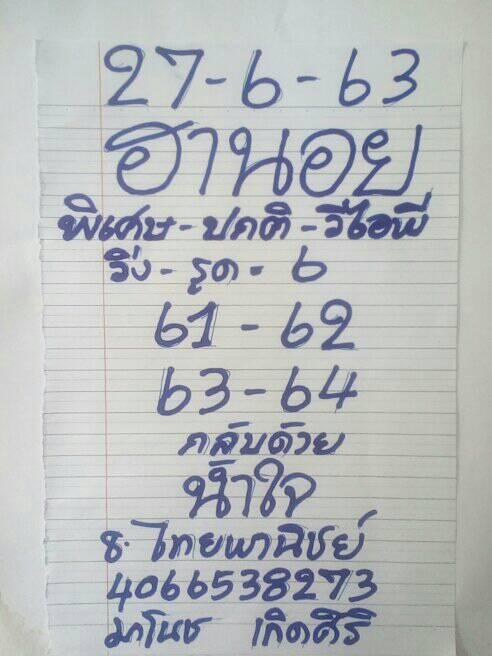 27-6-63
ฮานอย
พิเศษ-ปกติ-วีไอพี
วิ่ง-รูด-6
61-62
63-64
กลับด้วย
น้ำใจ
ธ.ไทยพานิชย์
4066538273
มาโนช เกิดศิริ